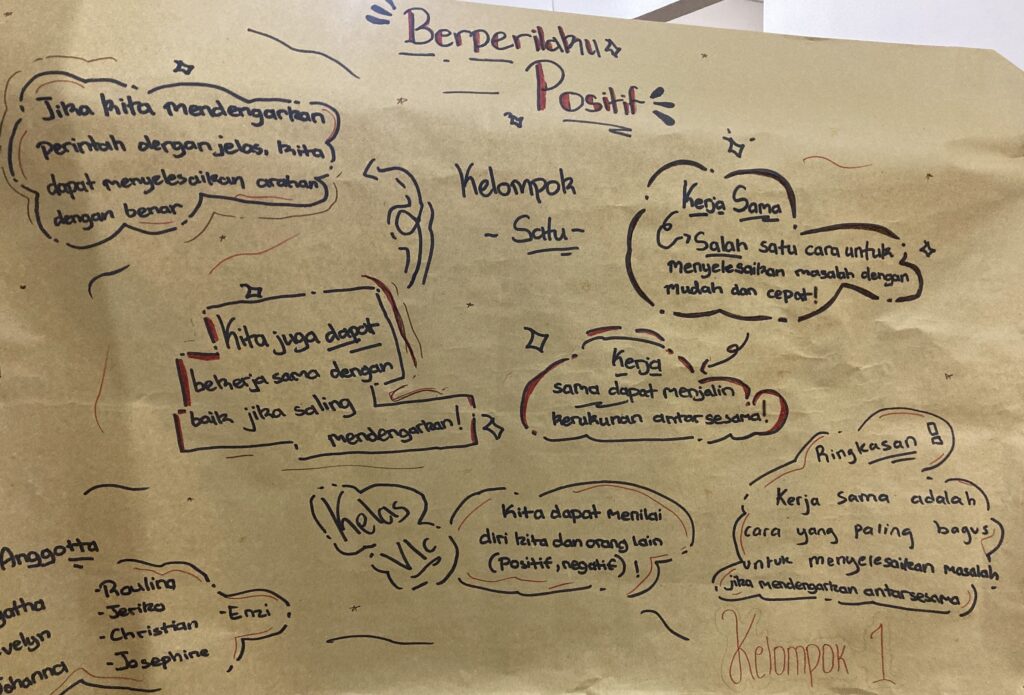 Berperilaku
Positif
Jika kita mendengarkan
perintah dengan jelas, kita
dapat menyelesaikan arahan
dengan benar
Kelompok
- Satu -
Kerja Sama
Salah satu cara untuk
menyelesaikan masalah dengan
mudah dan cepat!
Kita juga dapat
bekerja sama dengan
baik jika saling
mendengarkan!
Kerja
sama dapat menjalin
kerukunan antar sesama!
Ringkasan !
Kerja sama adalah
cara yang paling bagus
untuk menyelesaikan masalah
jika mendengarkan antarsesama
Kelas
VIc
Kita dapat menilai
diri kita dan orang lain
(Positif, negatif) !
Anggotta
-Jeriko
-Christian
-Josephine
-Enzi
Kelompok 1